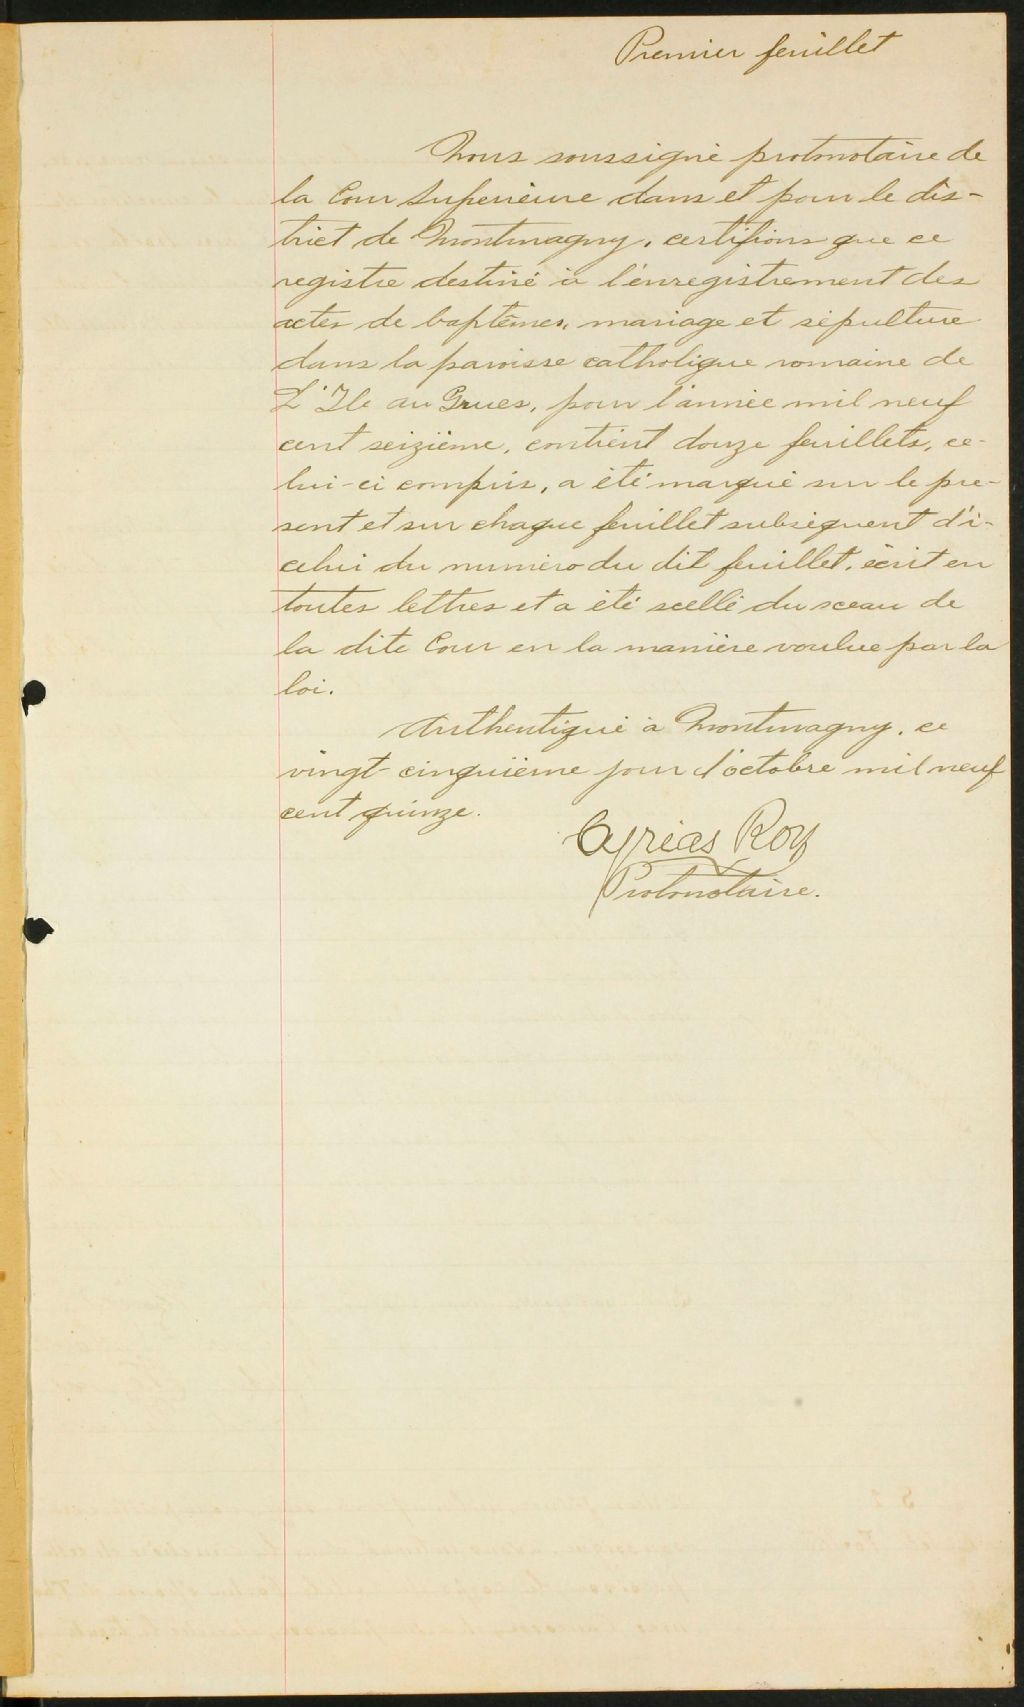 Premier feuillet
Nous soussigné protonotaire de
la Cour Supérieure dans et pour le dis-
trict de Montmagny, certifions que ce
registre destiné à l'enregistrement des
actes de baptêmes, mariage et sépulture
dans la paroisse catholique romaine de
L'Ile au Grues, pour l'année mil neuf
cent seizième, contient douze feuillets, ce-
lui-ci compris, a été marqué sur le pre-
sent et sur chaque feuillet subséquent d'i-
celui du numéro du dit feuillet, écrit en
toutes lettres et a été scellé du sceau de
la dite Cour en la manière voulue par la
loi.
Authentiqué à Montmagny, ce
vingt-cinquième jour d'octobre mil neuf
cent quinze.
Cyrias Roy
Protonotaire.